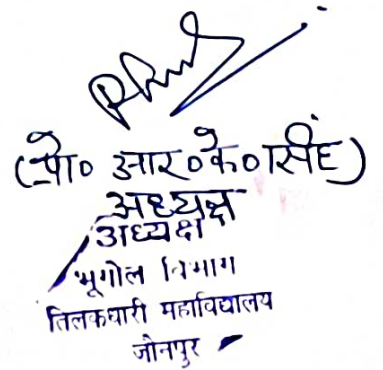 (प्रो० आर०के०सिंह)
अध्यक्ष
अध्यक्ष
भूगोल विभाग
तिलकधारी महाविद्यालय
जौनपुर